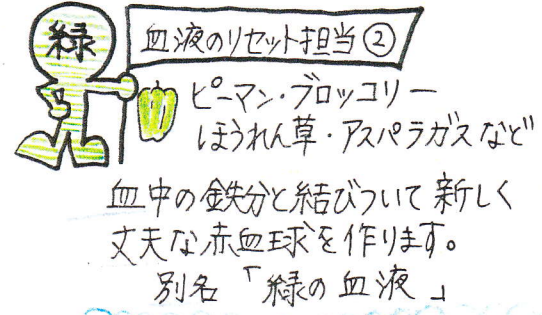 緑
血液のリセット担当②
ピーマン・ブロッコリー
ほうれん草・アスパラガスなど
血中の鉄分と結びついて新しく
丈夫な赤血球を作ります。
別名「緑の血液」